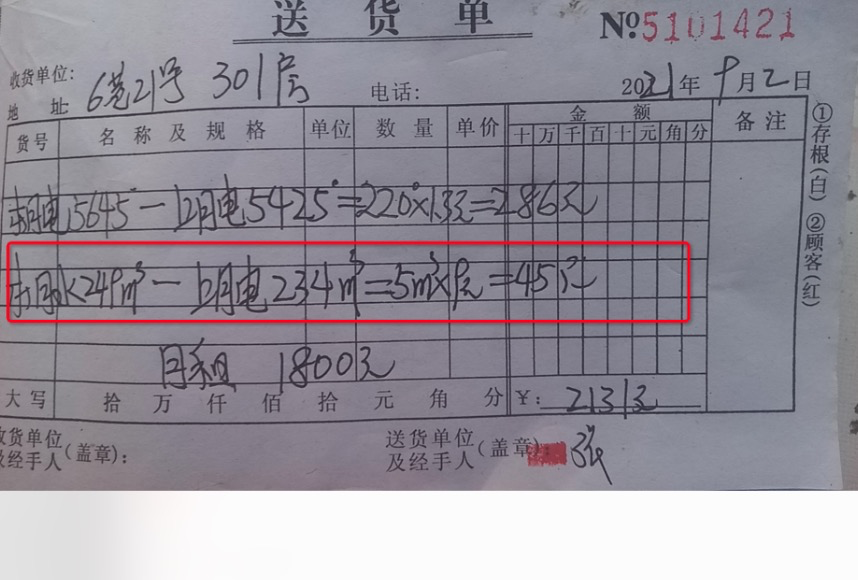 送货单 №5101421
收货单位：
地址 6巷21号 301房 电话： 2021年9月2日
货号 名称及规格 单位 数量 单价 金额 备注
十 万 千 百 十 元 角 分
本月电5645°－上月电5425°=220°×1.3元=286元
本月水249m³－上月电234m³=5m³×9元=45元
月租 1800元
大写 拾 万 仟 佰 拾 元 角 分 ¥：2131元
收货单位及经手人（盖章）：
送货单位及经手人（盖章）： 张
①存根（白）②顾客（红）